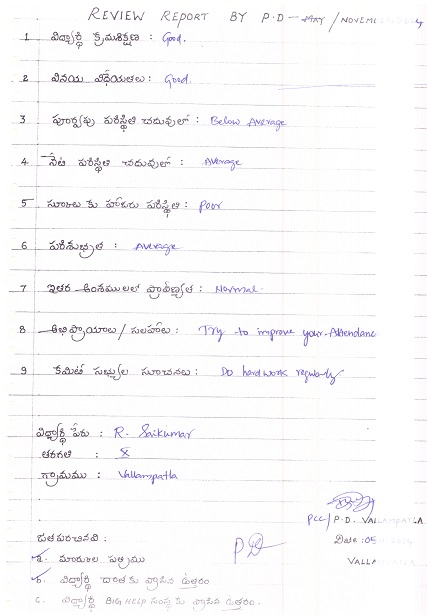 REVIEW REPORT BY P.D - MAY / NOVEM
1 విద్యార్థి క్రమశిక్షణ : Good.
2 వినయ విధేయతలు : Good.
3 పూర్వపు పరిస్థితి చదువులో : Below Average
4 నేటి పరిస్థితి చదువులో : Average
5 స్కూలు కు హాజరు పరిస్థితి : Poor
6 పరిశుభ్రత : Average
7 ఇతర అంశములలో ప్రావీణ్యత : Normal.
8 అభిప్రాయాలు / సలహాలు : Try to improve your Attendanc
9 కమిటీ సభ్యుల సూచనలు : Do hardwork regularly
విద్యార్థి పేరు : R. Saikumar
తరగతి : X
గ్రామము : Vallampatla
PCC / P.D. VALLAMPATLA
జతపరచినవి : Date : 05
a. మార్కుల పత్రము VALLAMPATLA
b. విద్యార్థి దాతకు వ్రాసిన ఉత్తరం
c. విద్యార్థి BIG HELP సంస్థకు వ్రాసిన ఉత్తరం.